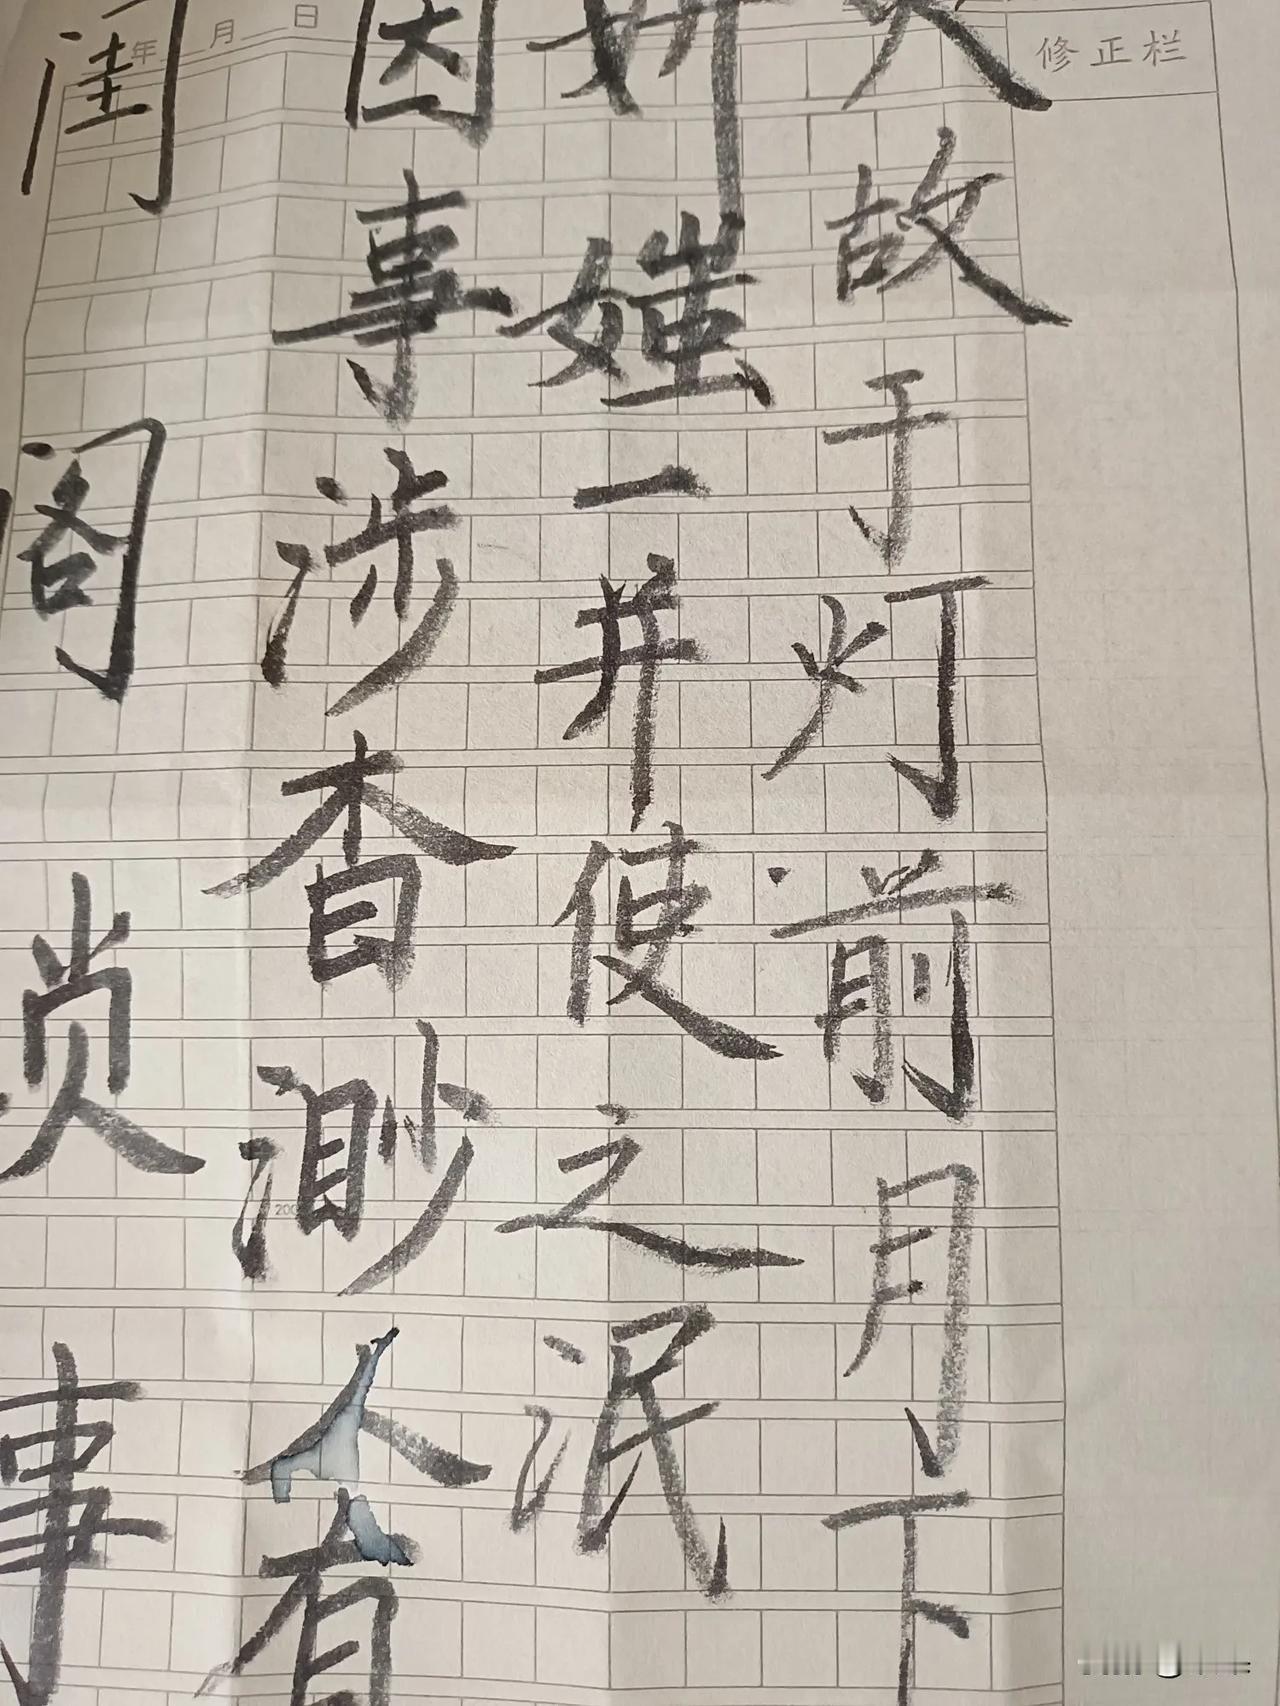 年 月 日
修正栏
故于灯前月下
妍媸一并使之泯
因事涉杳渺人有
闺阁琐事
200